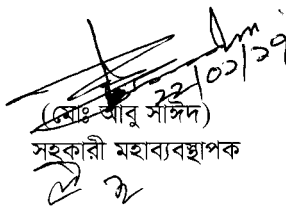 22/02/29
(মোঃ আবু সাঈদ)
সহকারী মহাব্যবস্থাপক